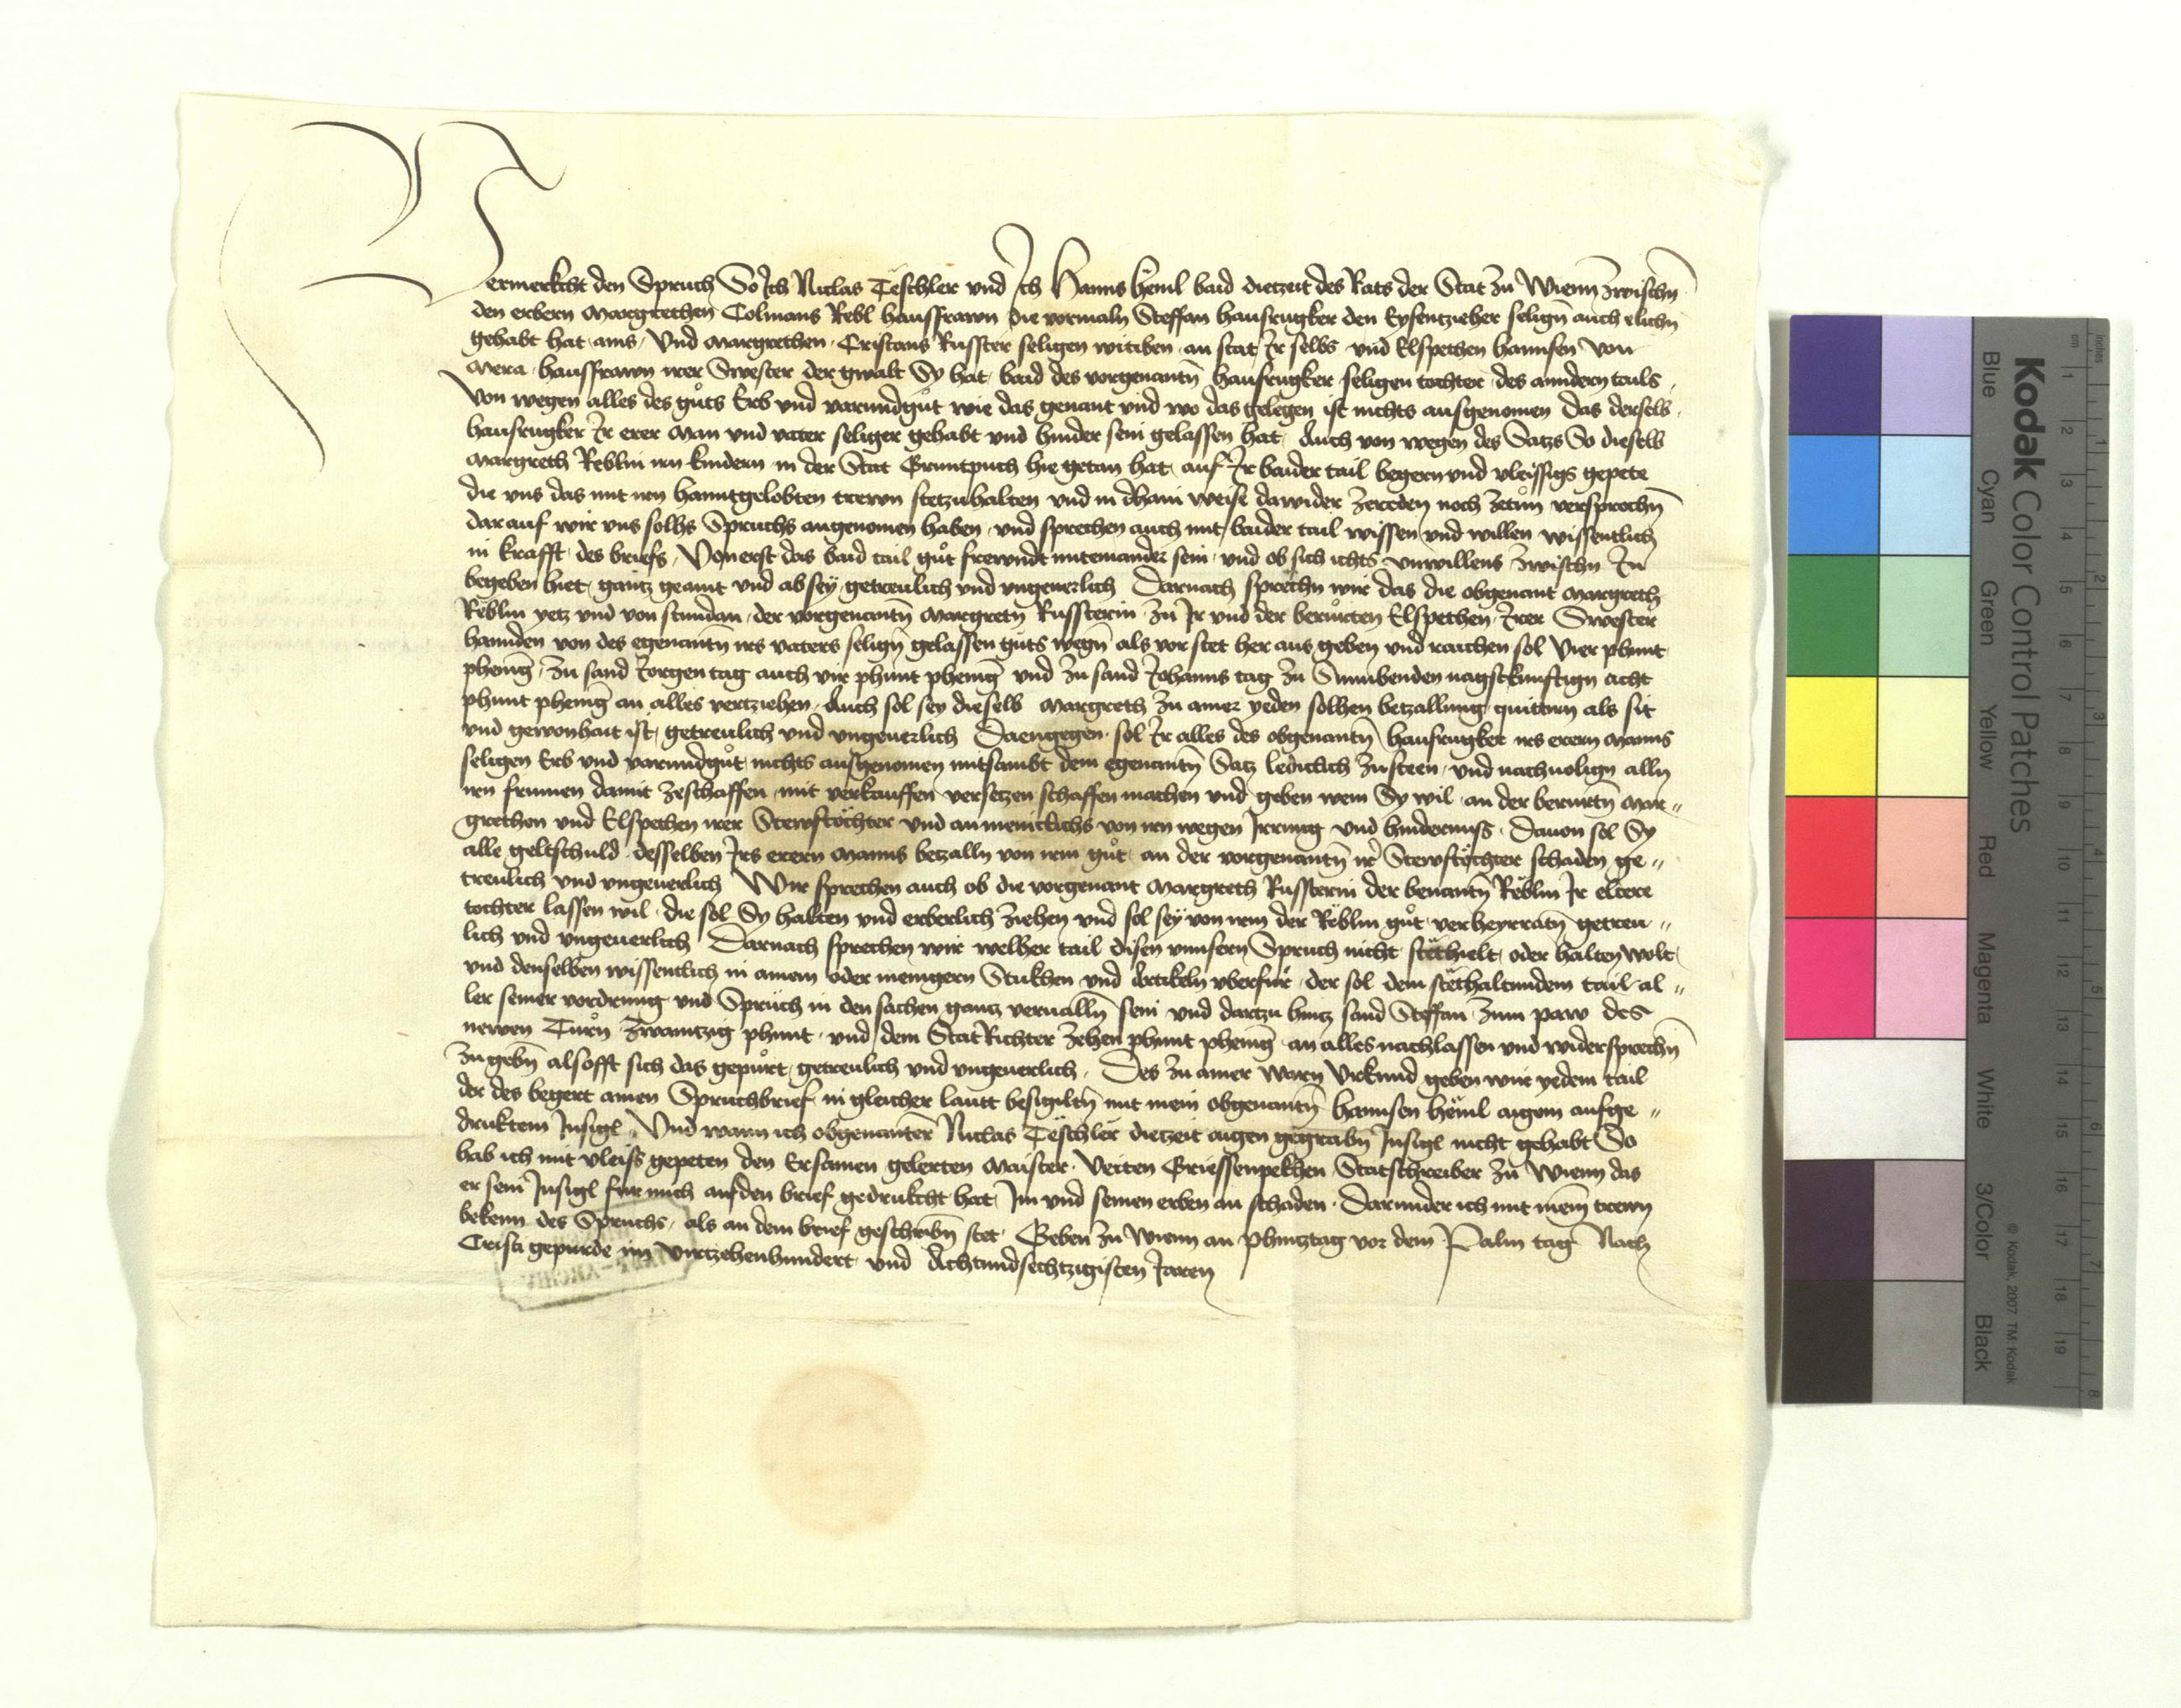 Vermerkcht den Spruch So Ich Niclas Teschler und Ich Hanns Heml baid dietzeit des Rats der Stat zu Wienn zwischn
den erbern Margrethen Colmans Rebl hausfrawn die vormaln Steffan hausrugker den Eysentzieher seligñ auch elichñ
gehabt hat ains, Und Margrethen Cristans Russter seligen witiben an stat Ir selbs und Elspethen hannsen von
Mera hausfrawn irer Swester der gwalt Sy hat, baid des vorgenantñ hausrugker seligen tochter des anndern tails
Von wegen alles des gůts Erb und varundgůt wie das genant und wo das gelegen ist nichts ausgenomen das derselb
hausrugker Ir erer man und vater seliger gehabt und hinder sein gelassen hat, Auch von wegen des Satzs So dieselb
Margreth Reblin irn kindern in der Stat Gruntpuch hie getan hat, auf Ir baider tail begern und vleissigs gepete
die uns das mit irn hanntgelobten trewn stetzuhalten und in dhain weise dawider zereden noch zetůn versprochñ
darauf wir uns solhs Spruchs angenomen haben, und sprechen auch mit baider tail wissen und willen wissentlich
in krafft des briefs, Vonerst das baid tail gůt frewndt miteinander sein, und ob sich ichts unwillens zwischn In
begeben hiet, gantz geaint und ab sey getreulich und ungeuerlich Darnach sprechn wir das die obgenant Margreth
Reblin yetz und von stundan, der vorgenantñ Margretn Russterin zu Ir und der berůrten Elspethen Irer Swester
hannden von des egenantñ irs vaters seligñ gelassen gůts wegñ als vor stet her aus geben und raichen sol Vier phunt
phenig̃, zu sand Iorgen tag auch vir phunt phenig̃ und zu sand Iohanns tag zu Sunnbenden nagstkunftign acht
phunt phenig̃ an alles vertziehen, Auch sol sey dieselb Margreth zu ainer yeden solhen betzallung quittirn als sit
und gewonhait ist, getreulich und ungeuerlich Daengegen sol Ir alles des obgenantñ hausrugker irs erern manns
seligen Erb und varundgůt nichts ausgenomen mitsambt dem egenantñ Satz lediclich zusteen, und nachuolign alln
irn frumen damit zeschaffen, mit verkauffen versetzen schaffen machen und geben wem Sy wil, an der berurtñ Mar„
grethen und Elspethen irer Stewftochter und an meniclichs von irn wegen Irrung und hindernuss, Dauon sol Sy
alle geltschuld desselben Irs erern manns betzalln von irem gůt, an der vorgenantñ ir Stewftochter schaden ge„
treulich und ungeuerlich Wir sprechen auch ob die vorgenant Margreth Russterin der benantñ Reblin Ir eltere
tochter lassen wil, die sol Sy halten und erberlich ziehen und sol sey von irem der Reblin gůt verheyrratñ getreu„
lich und ungeuerlich Darnach sprechen wir welher tail disen unnsern Spruch nicht stethielt, oder halten wolt
und denselben wissentlich in ainem oder menigern Stukhen und Artikeln uberfůr, der sol dem stethaltundem tail al„
ler seiner vordrung und Sprüch in den sachen gantz veruallñ sein, und dartzu hintz sand Steffan zum paw des
newen Turñ zwaintzig phunt, und dem Stat Richter zehen phunt phenig̃ an alles nachlassen und widersprechñ
zu gebñ alsofft sich das gepůrt, getreulich und ungeuerlich, Des zu ainer warn Urkund geben wir yedem tail
der des begert ainen Spruchbrief in gleicher lautt besigiltñ mit mein obgenantñ hannsen Heml aigem aufge„
druktem Insigl, Und wann ich obgenanter Niclas Teschler dietzeit aigen gegrabñ Insigl nicht gehabt So
hab ich mit vleiss gepeten den Ersamen gelerten Maister Veiten Griessenpekhen Statschreiber zu Wienn das
er sein Insigl fur mich auf den brief gedrukcht hat, Im und seinen erben an schaden, Darunder ich mit meiñ trewn
bekenn des Spruchs, als an dem brief geschribñ stet, Geben zu Wienn an phintztag vor dem Palm tag Nach
Cristi gepurde im virtzehenhundert und Achtundsechtzigisten Iaren
Kodak Color Control Patches
© Kodak, 2007 TM: Kodak
Blue Cyan Green Yellow Red Magenta White 3/Color Black
cm 1 2 3 4 5 6 7 8 9 10 11 12 13 14 15 16 17 18 19
inches 1 2 3 4 5 6 7 8